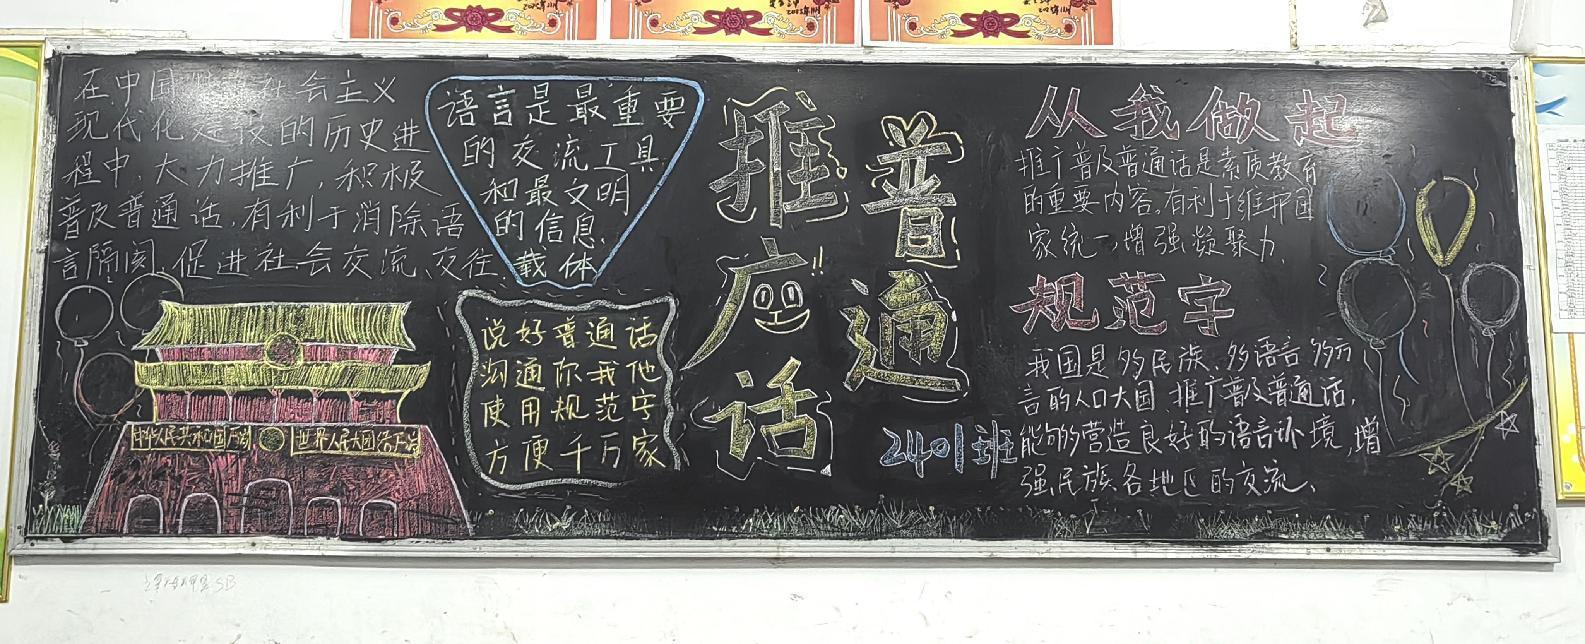 在中国特色社会主义
现代化建设的历史进
程中,大力推广,积极
普及普通话,有利于消除语
言隔阂,促进社会交流、交往、
语言是最重要
的交流工具
和最文明
的信息
载体
说好普通话
沟通你我他
使用规范字
方便千万家
中华人民共和国万岁
世界人民大团结万岁
推广
普通
话
!!
2401班
从我做起
推广普及普通话是素质教育
的重要内容。有利于维护国
家统一,增强凝聚力,
规范字
我国是多民族、多语言、多方
言的人口大国 推广普及普通话,
能够营造良好的语言环境,增
强民族、各地区的交流、